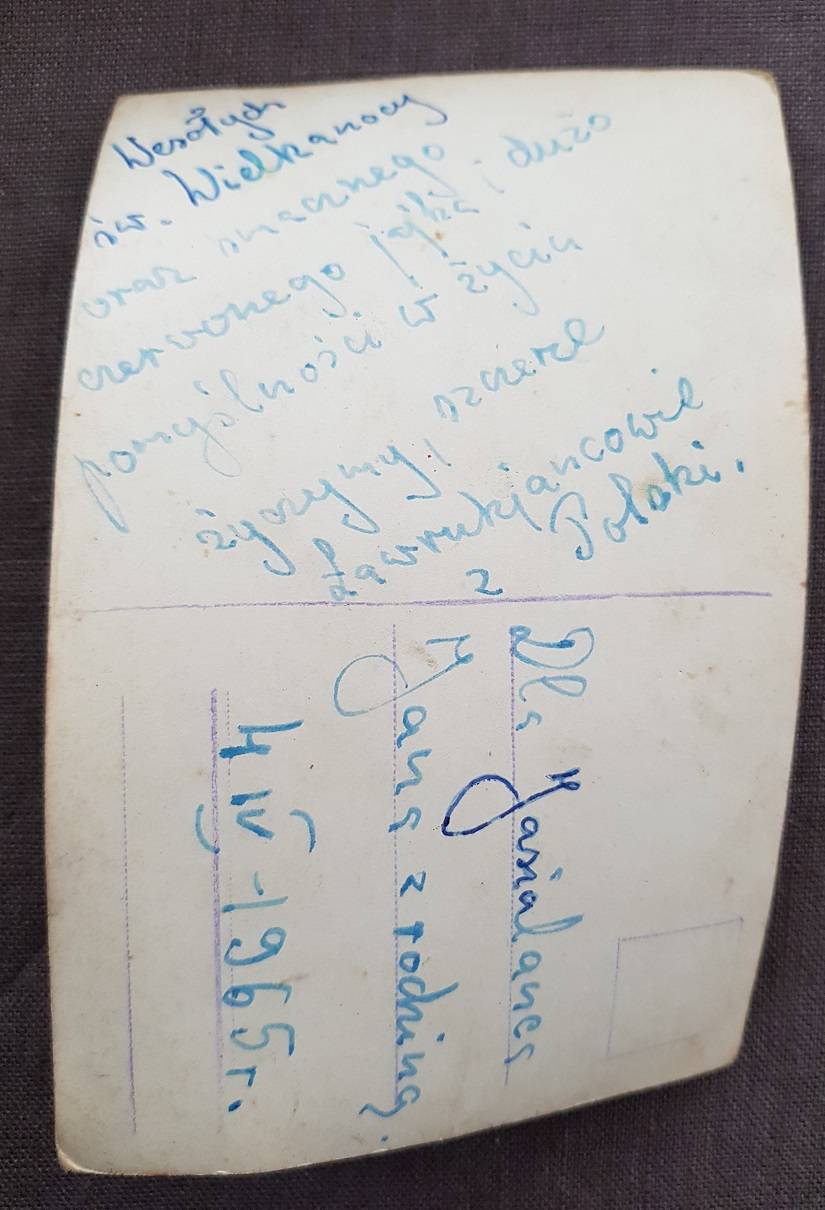 Wesołych
św. Wielkanocy
oraz smacznego
czerwonego jajka i dużo
pomyślności w życiu
życzymy, szczerze
Ławrukjancowie
z Polski.
Dla Jasialanca
Jana z rodziną.
4 IV - 1965 r.